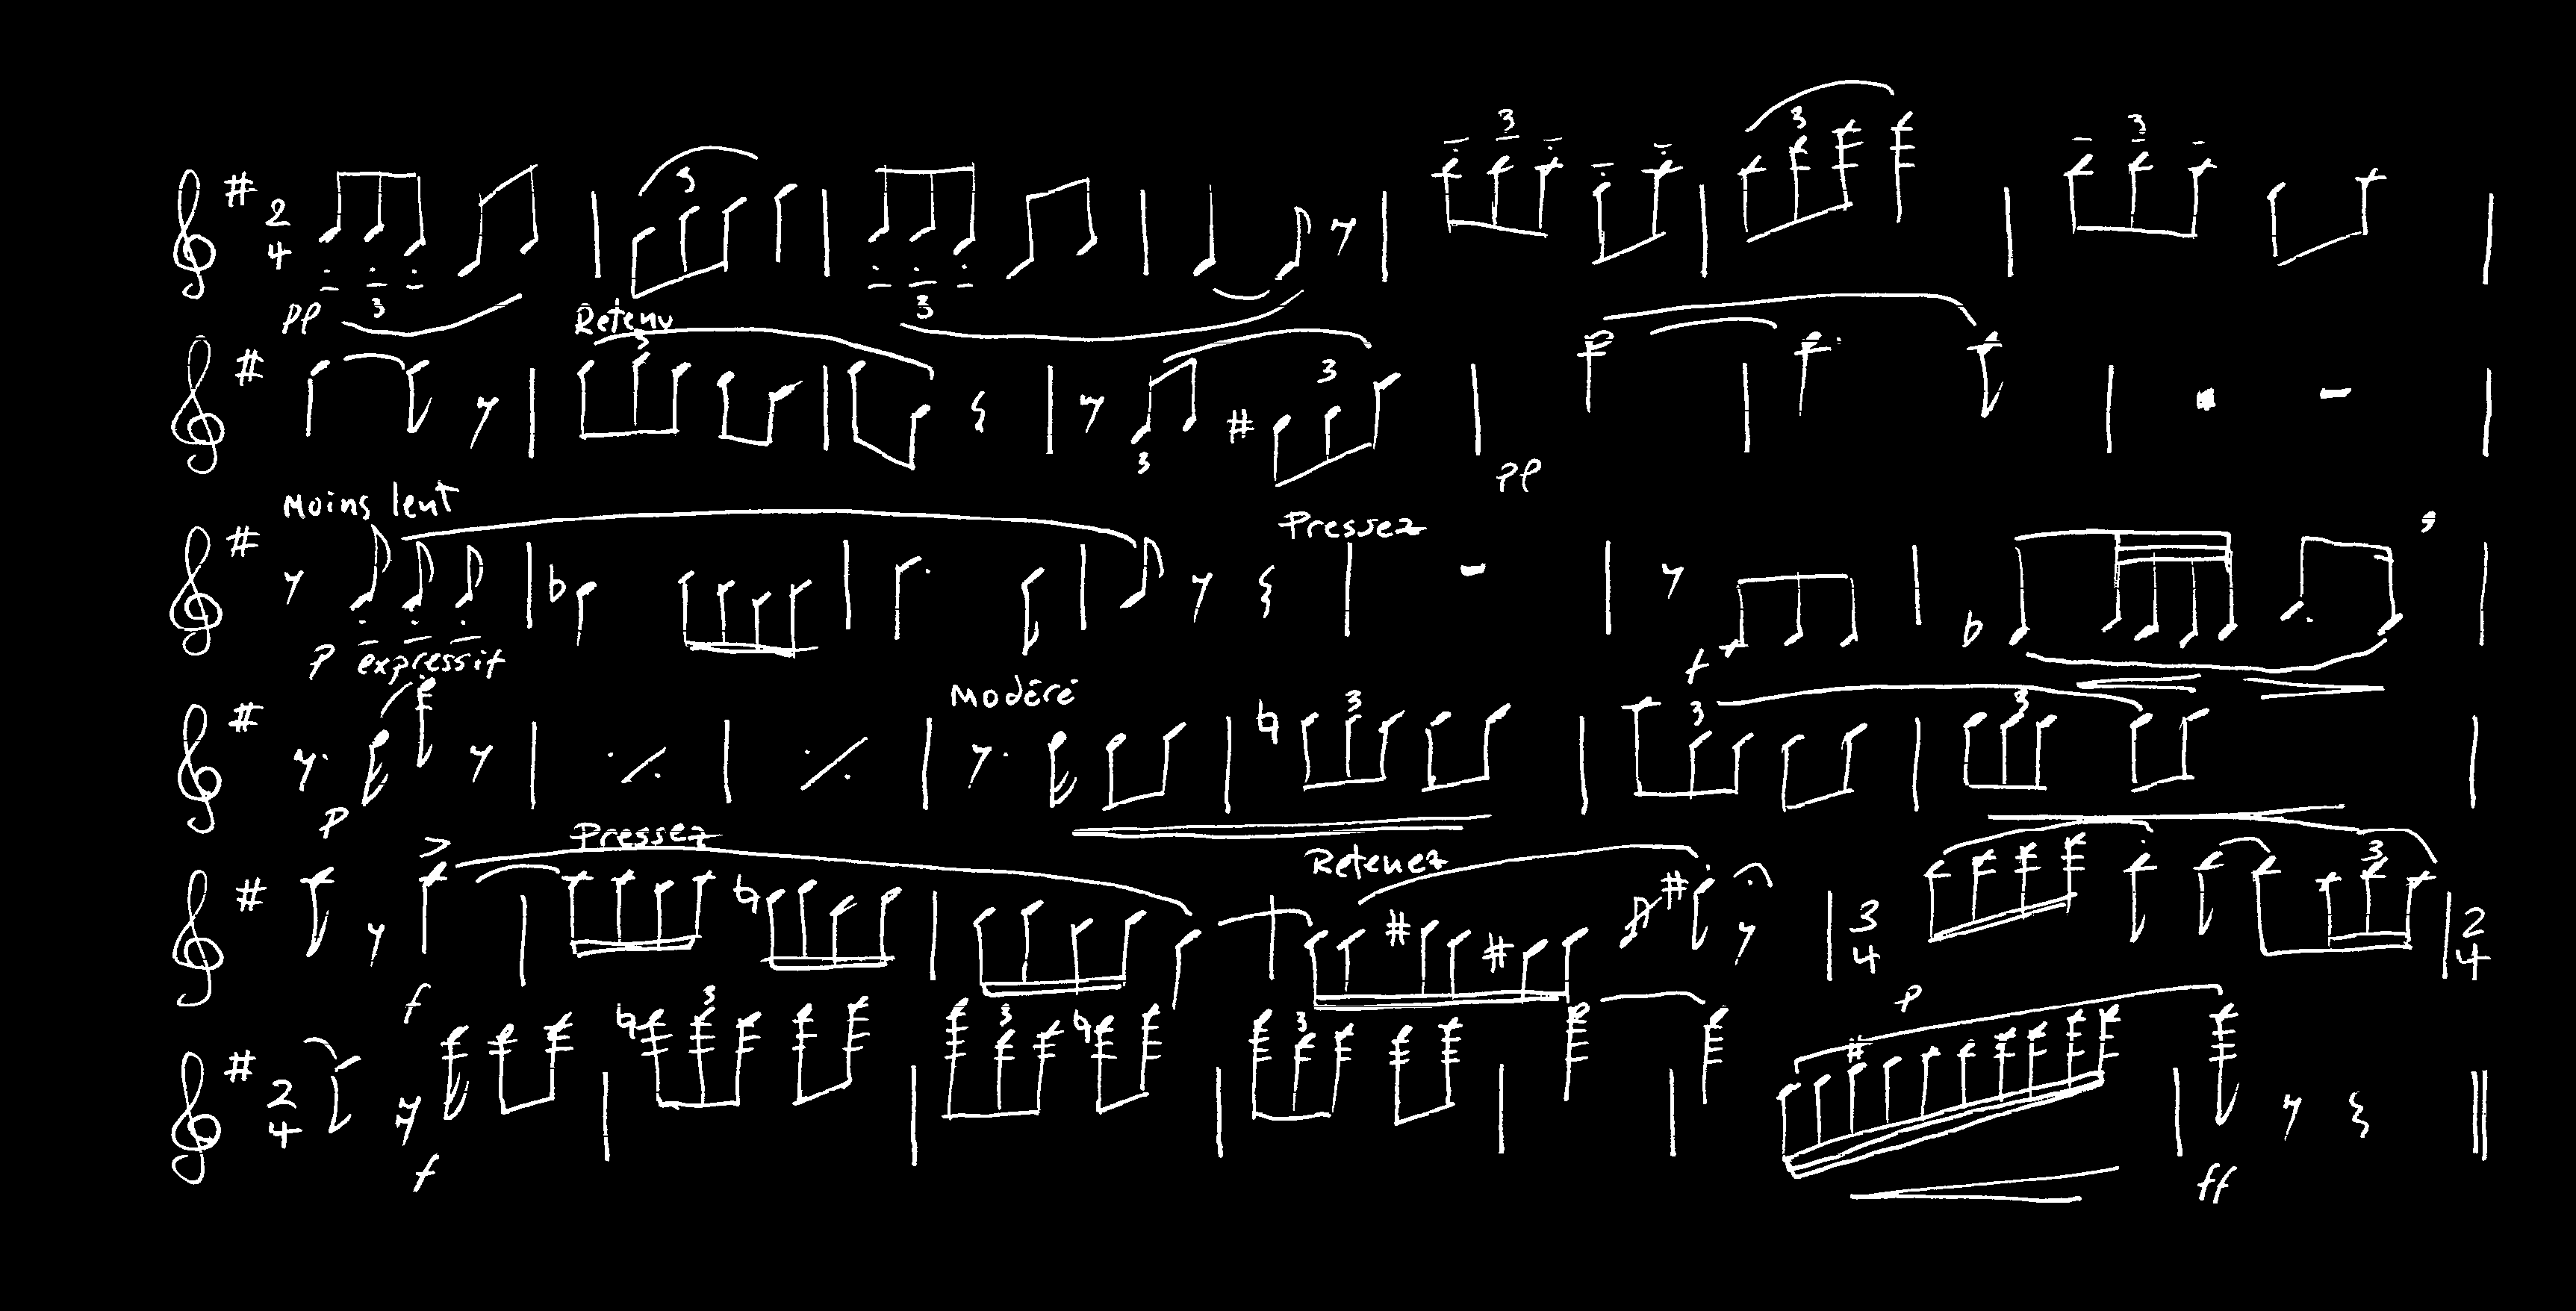 3 3
3
2
4
3 3
pp
Retenu
3
3
3
pp
Moins lent
Pressez
p expressif
f
Modéré
3
3 3
p
Pressez
Retenez
3
3
4
2
4
f
p
3
3 3
2
4
f
ff